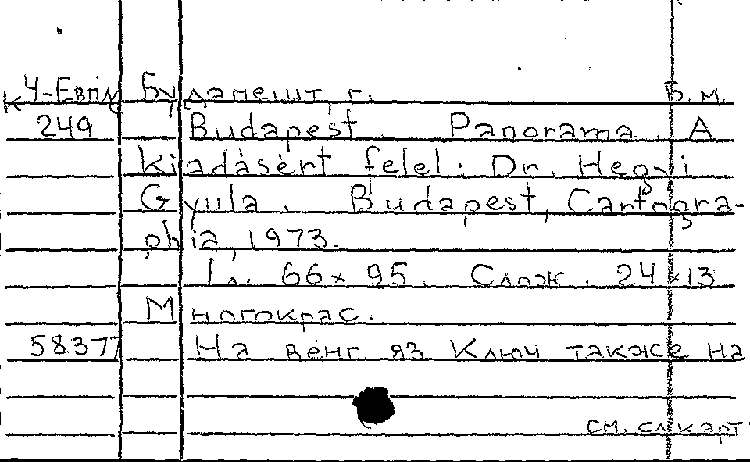 К 4-Евпд Будапешт, г. Б.м.
249 Budapest. Panorama. A
kiadásért felel: Dr. Hegyi
Gyula. Budapest, Cartogra-
phia, 1973.
1 л. 66×95. Слож. 24×13
Многокрас.
58377 На венг яз Ключ также на
см. сл карт